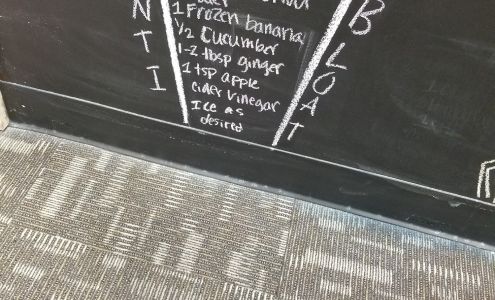 1 Frozen banana
1/2 Cucumber
1-2 tbsp ginger
1 tsp apple
cider vinegar
Ice as
desired
N
T
I
B
L
O
A
T